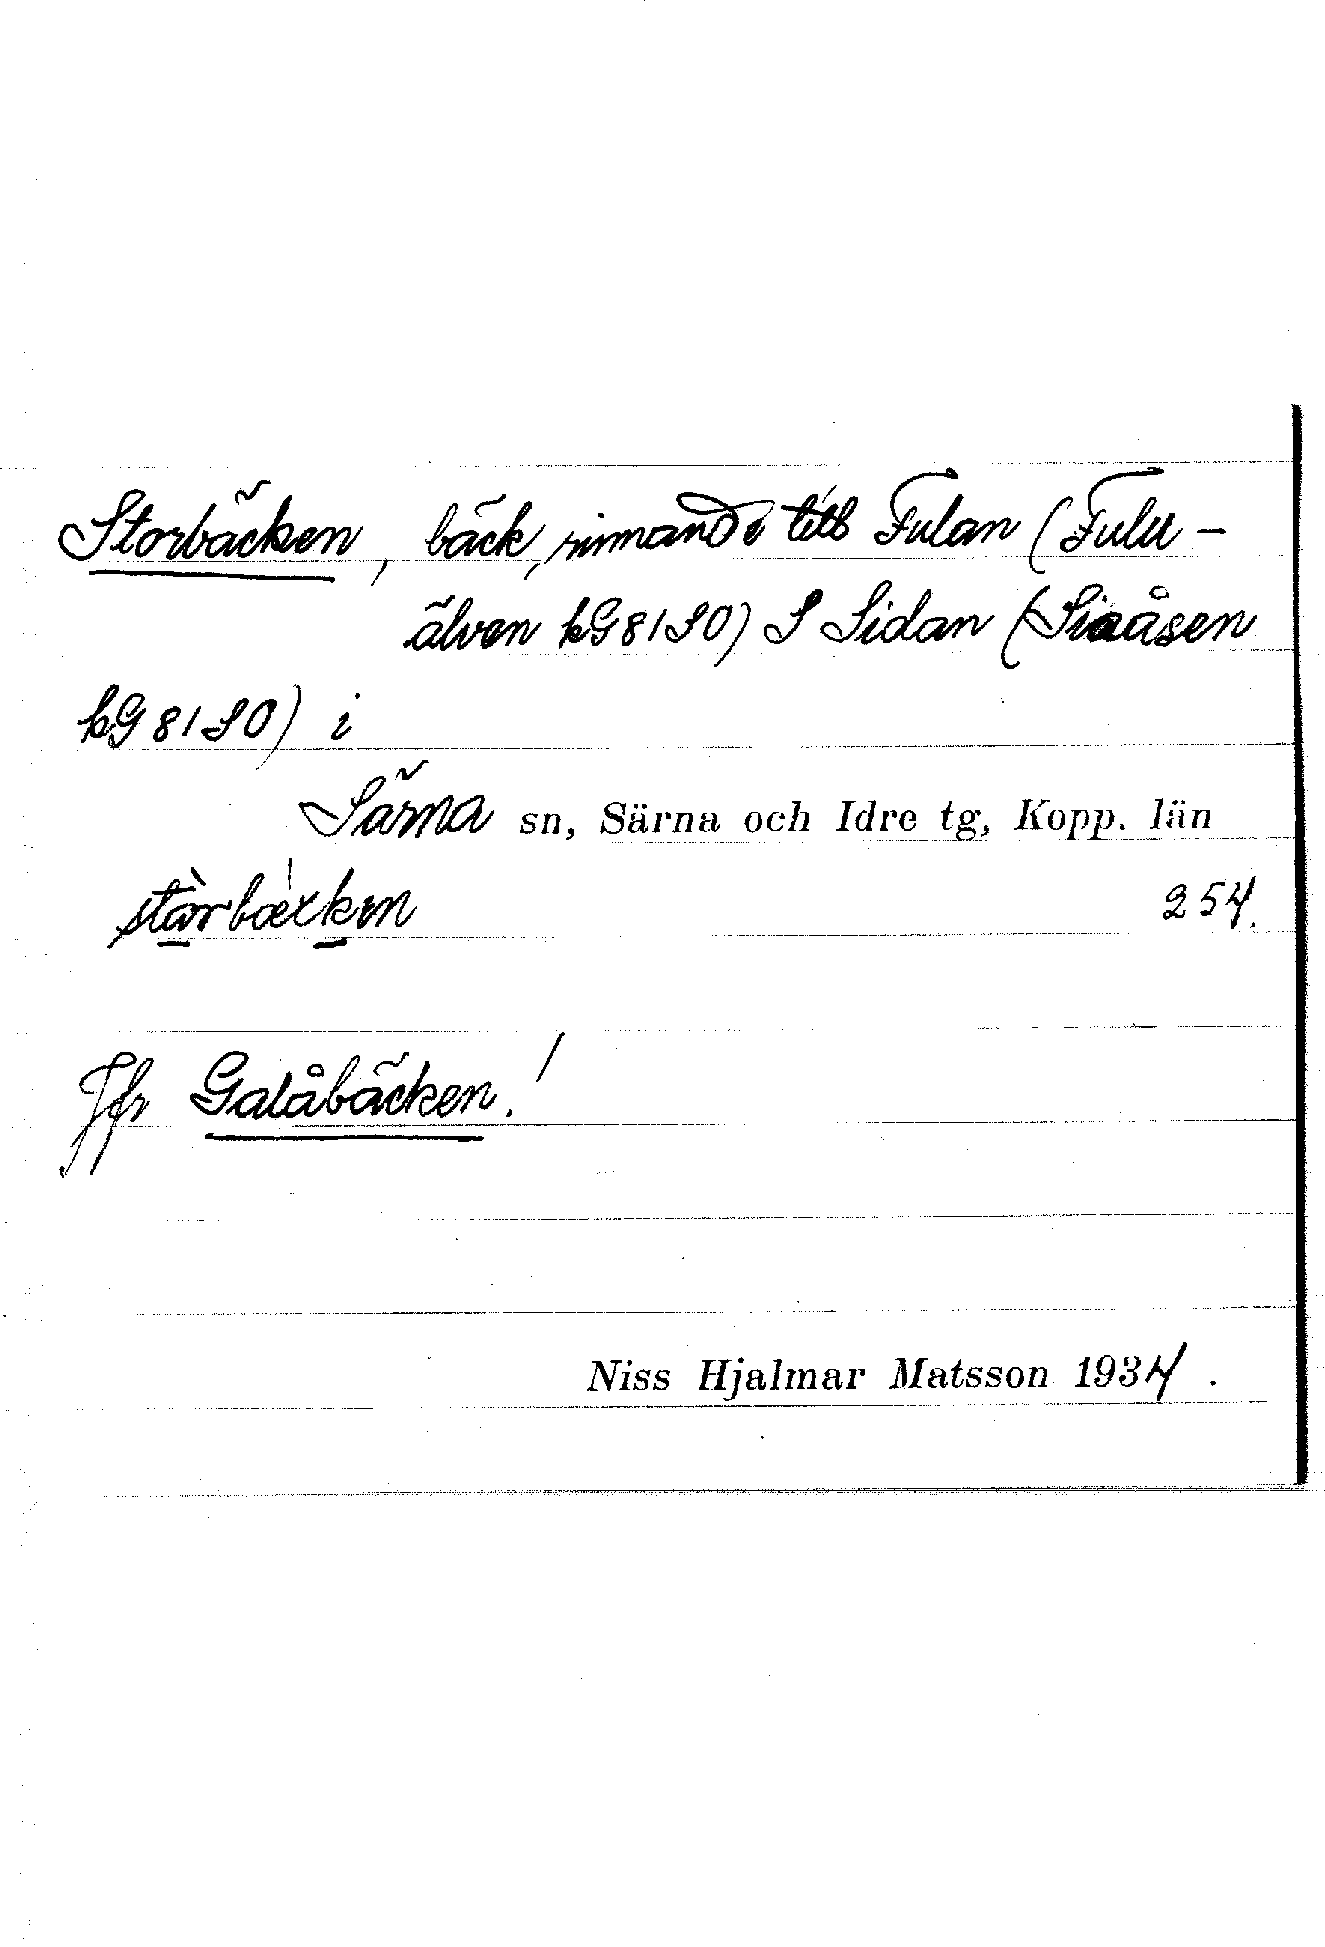 Storbäcken, bäck, rinnande till Fulan (Fulu-
älven kG 81 SO) S Sidan (Siaåsen
kG 81 SO) i
Särna sn, Särna och Idre tg, Kopp. län
254.
Jfr Galåbäcken!
Niss Hjalmar Matsson 1934.